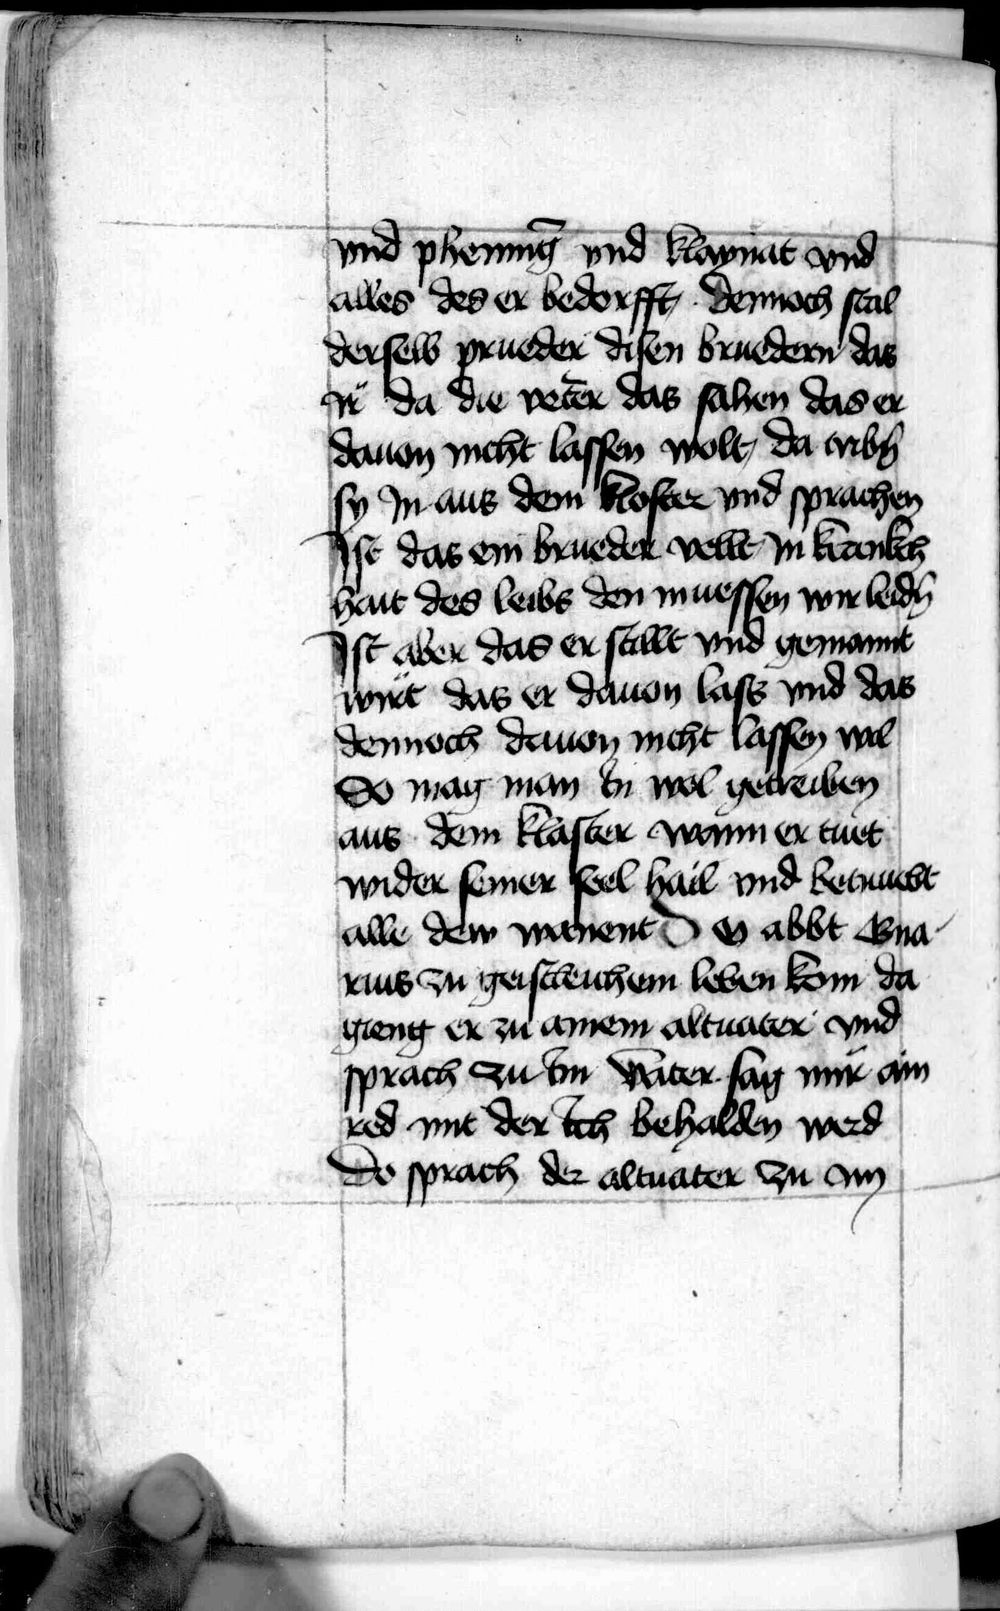 vnd phening̅ vnd klaynat vnd
alles des er bedorfft / dennoch stal
derselb prueder disen bruedern das
ir da die veter das sahen das er
dauon nicht lassen wolt / da tribn̄
sy In aus dem kloster vnd sprachen
Ist das ein brueder vellt In krankch
hait des leibs den muessen wir leidn̄
Ist aber das er stillt vnd gemannt
wirt das er dauon lass vnd das
dennoch dauon nicht lassen wil
So mag man In wol getreiben
aus dem klaster wann er tuet
wider seiner seel hail vnd betruebt
alle dew wanent Do abbt Eua
rius zu geistleichem leben kom da
gieng er zu ainem altuater vnd
sprach zu Im Vater sag mir ain
red mit der Ich behalden werd
Do sprach der altuater zu Im